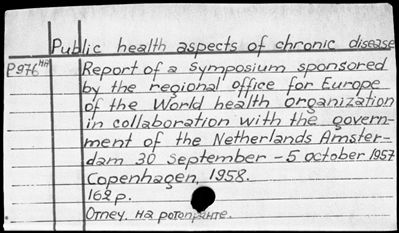 Public health aspects of chronic disease
P976 НА Report of a symposium sponsored
by the regional office for Europe
of the World health organization
in collaboration with the govern-
ment of the Netherlands Amster-
dam 30 september - 5 october 1957
Copenhagen, 1958.
162 p.
Отпеч. на ротопринте.